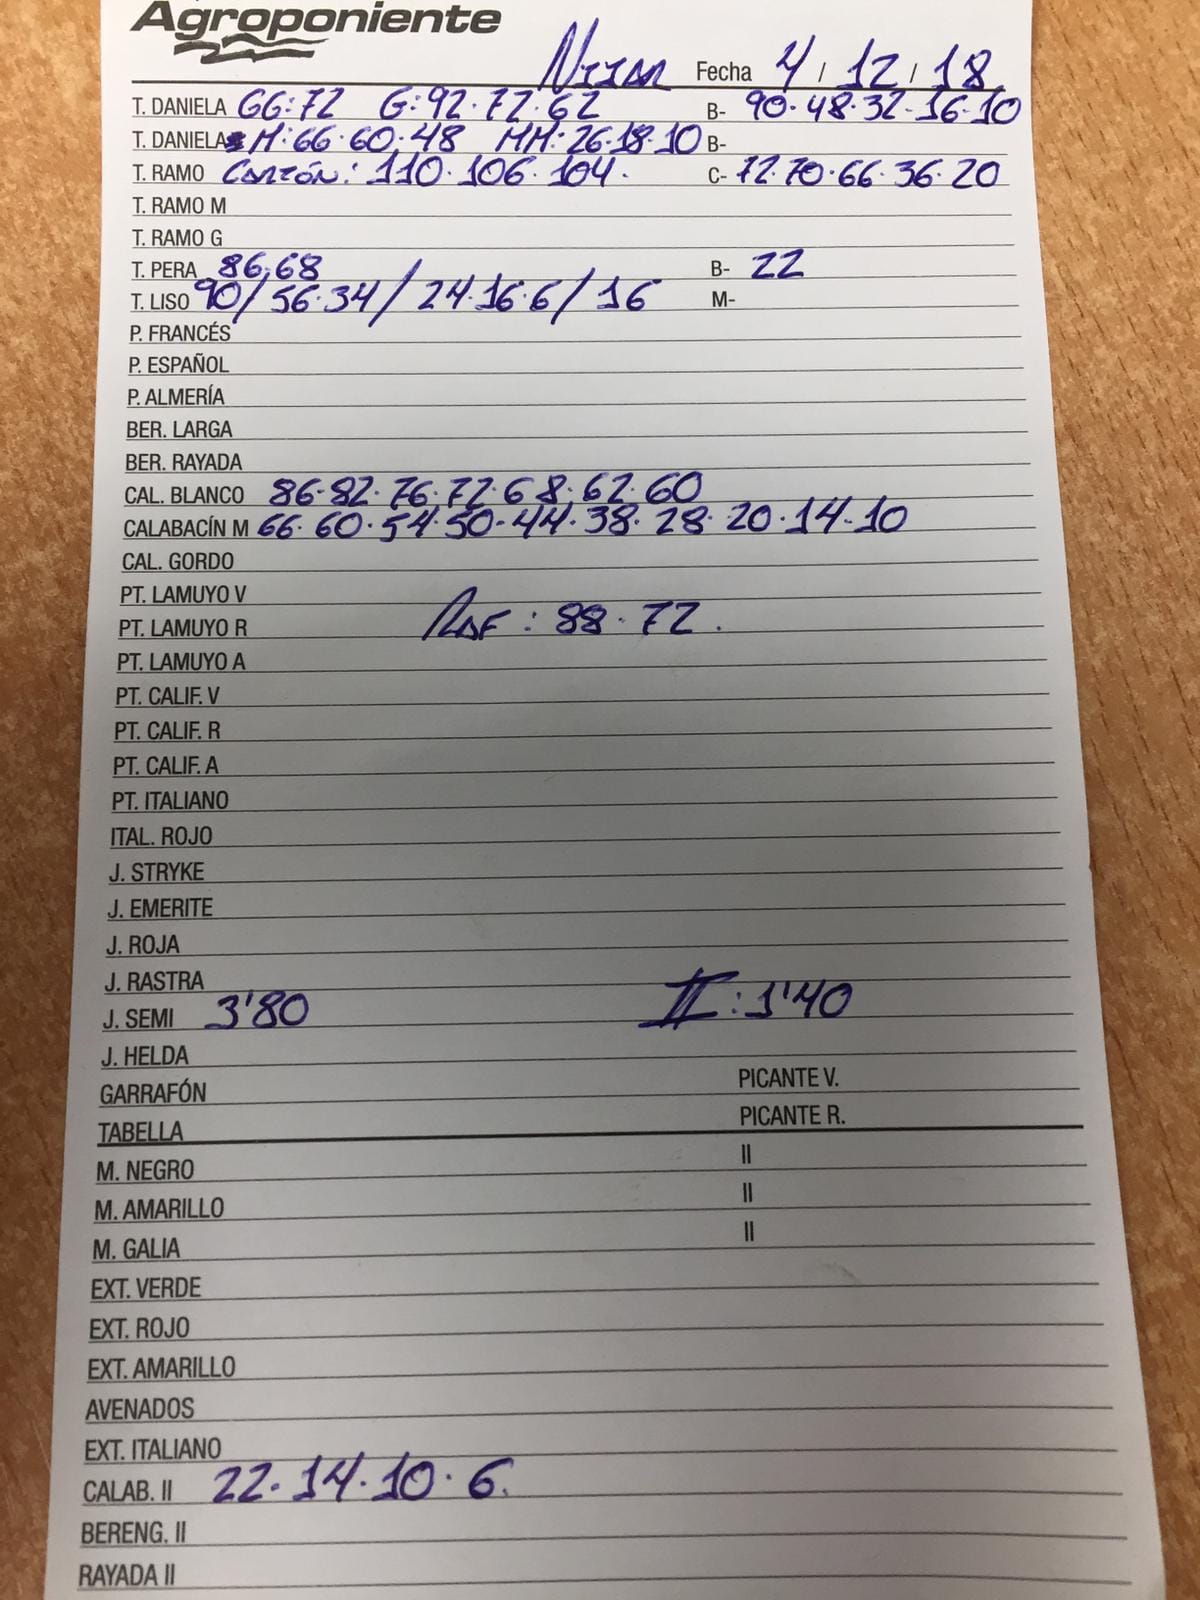 Agroponiente
Nijar Fecha 4 / 12 / 18
T. DANIELA GG:72 G:92.72.62 B- 90.48.32.16.10
T. DANIELA M:66.60.48 MM:26.18.10 B-
T. RAMO Cartón: 110.106.104. C- 72.70.66.36.20
T. RAMO M
T. RAMO G
T. PERA 86.68 B- 22
T. LISO 90/56.34/24.16.6/16 M-
P. FRANCÉS
P. ESPAÑOL
P. ALMERÍA
BER. LARGA
BER. RAYADA
CAL. BLANCO 86.82.76.72.68.62.60
CALABACÍN M 66.60.54.50.44.38.28.20.14.10
CAL. GORDO
PT. LAMUYO V
PT. LAMUYO R Raf: 88.72.
PT. LAMUYO A
PT. CALIF. V
PT. CALIF. R
PT. CALIF. A
PT. ITALIANO
ITAL. ROJO
J. STRYKE
J. EMERITE
J. ROJA
J. RASTRA
J. SEMI 3'80 II: 1'40
J. HELDA
GARRAFÓN PICANTE V.
TABELLA PICANTE R.
M. NEGRO II
M. AMARILLO II
M. GALIA II
EXT. VERDE
EXT. ROJO
EXT. AMARILLO
AVENADOS
EXT. ITALIANO
CALAB. II 22.14.10.6.
BERENG. II
RAYADA II